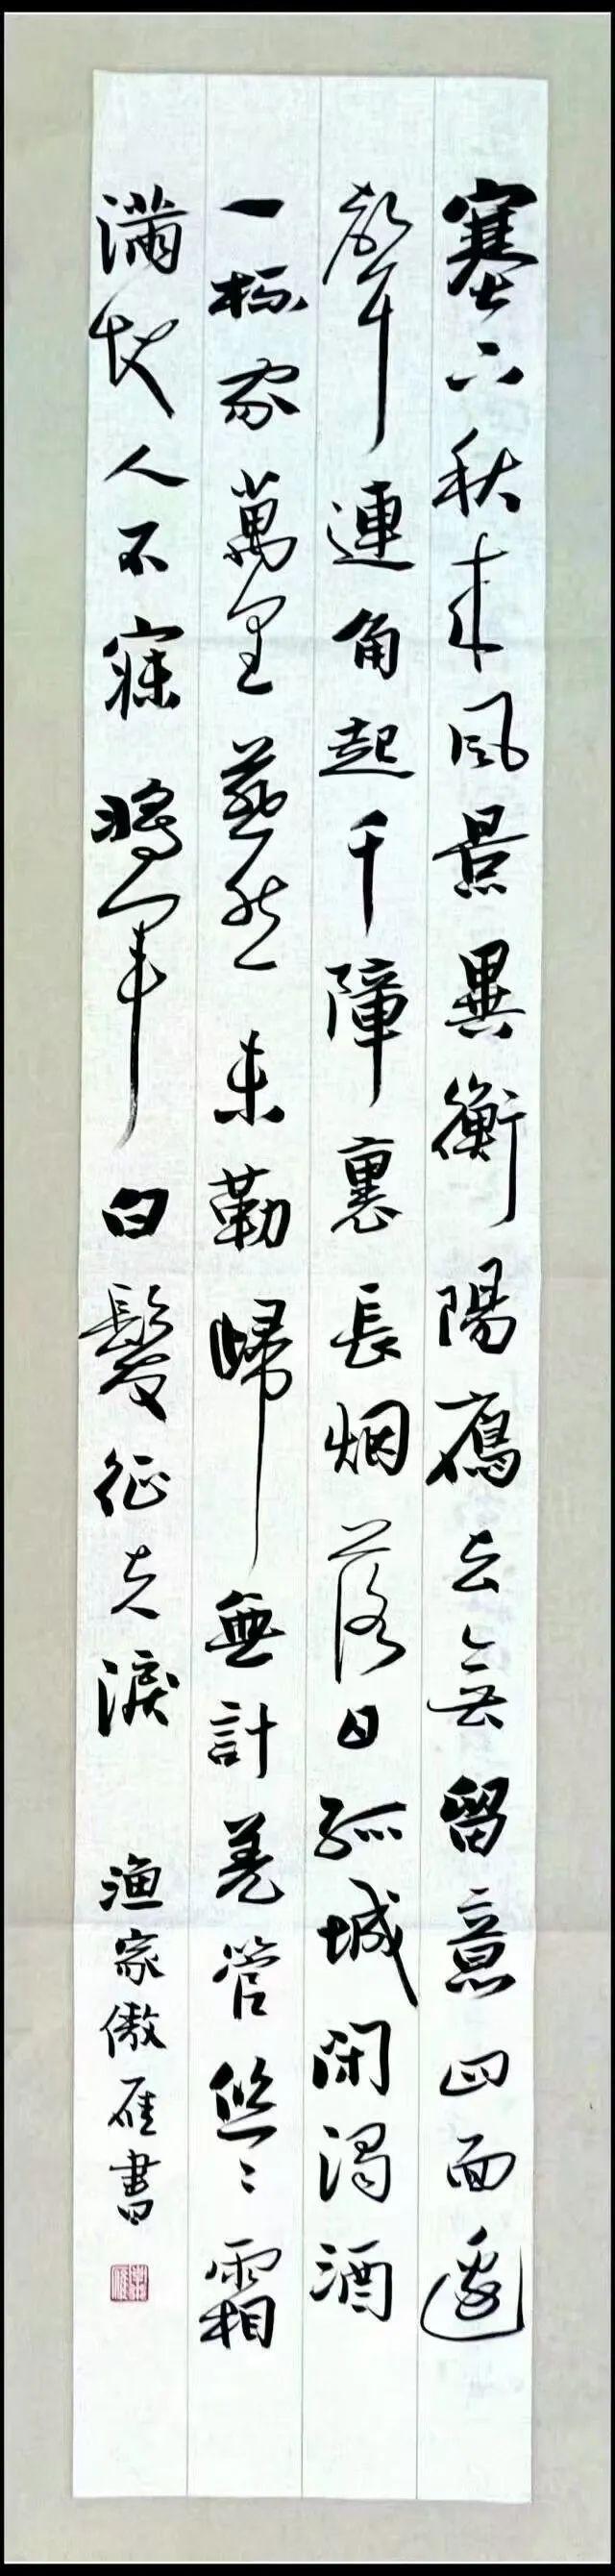 塞下秋来風景異衡陽鴈去無留意四面邊
聲連角起千障裏長烟落日孤城閉濁酒
一杯家萬里燕然未勒歸無計羌管悠〻霜
滿地人不寐將軍白髮征夫淚 漁家傲雁書